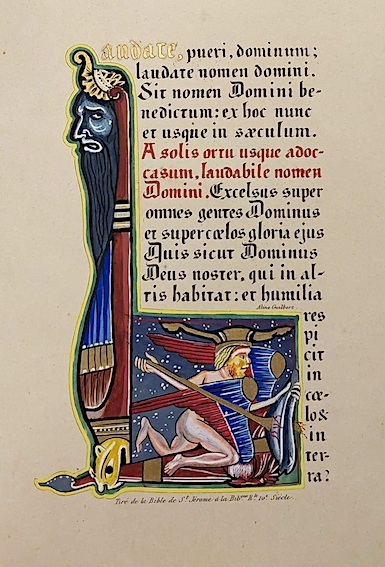 Laudate, pueri, dominum;
laudate nomen domini.
Sit nomen Domini be-
nedictum: ex hoc nunc
et usque in sæculum.
A solis ortu usque adoc-
casum, laudabile nomen
Domini. Excelsus super
omnes gentes Dominus
et super cœlos gloria ejus
Quis sicut Dominus
Deus noster, qui in al-
tis habitat: et humilia
Guilbert
res
pi
cit
in
cœ-
lo &
in
ter-
ra?
Tiré de la Bible de St. Jérome à la 10e Siècle.